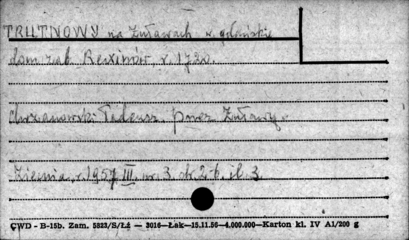 TRUTNOWY na Żuławach w. gdańskie
dom zab. Rexinów r. 1720.
Chrzanowski Tadeusz. przez Żuławy.
Ziemia r. 1957 III. nr. 3. str. 26. il. 3
ÇWD - B-15b. Zam. 5823/S/Łż — 3016—Łak—15.11.56—4.000.000—Karton kl. IV A1/200 g